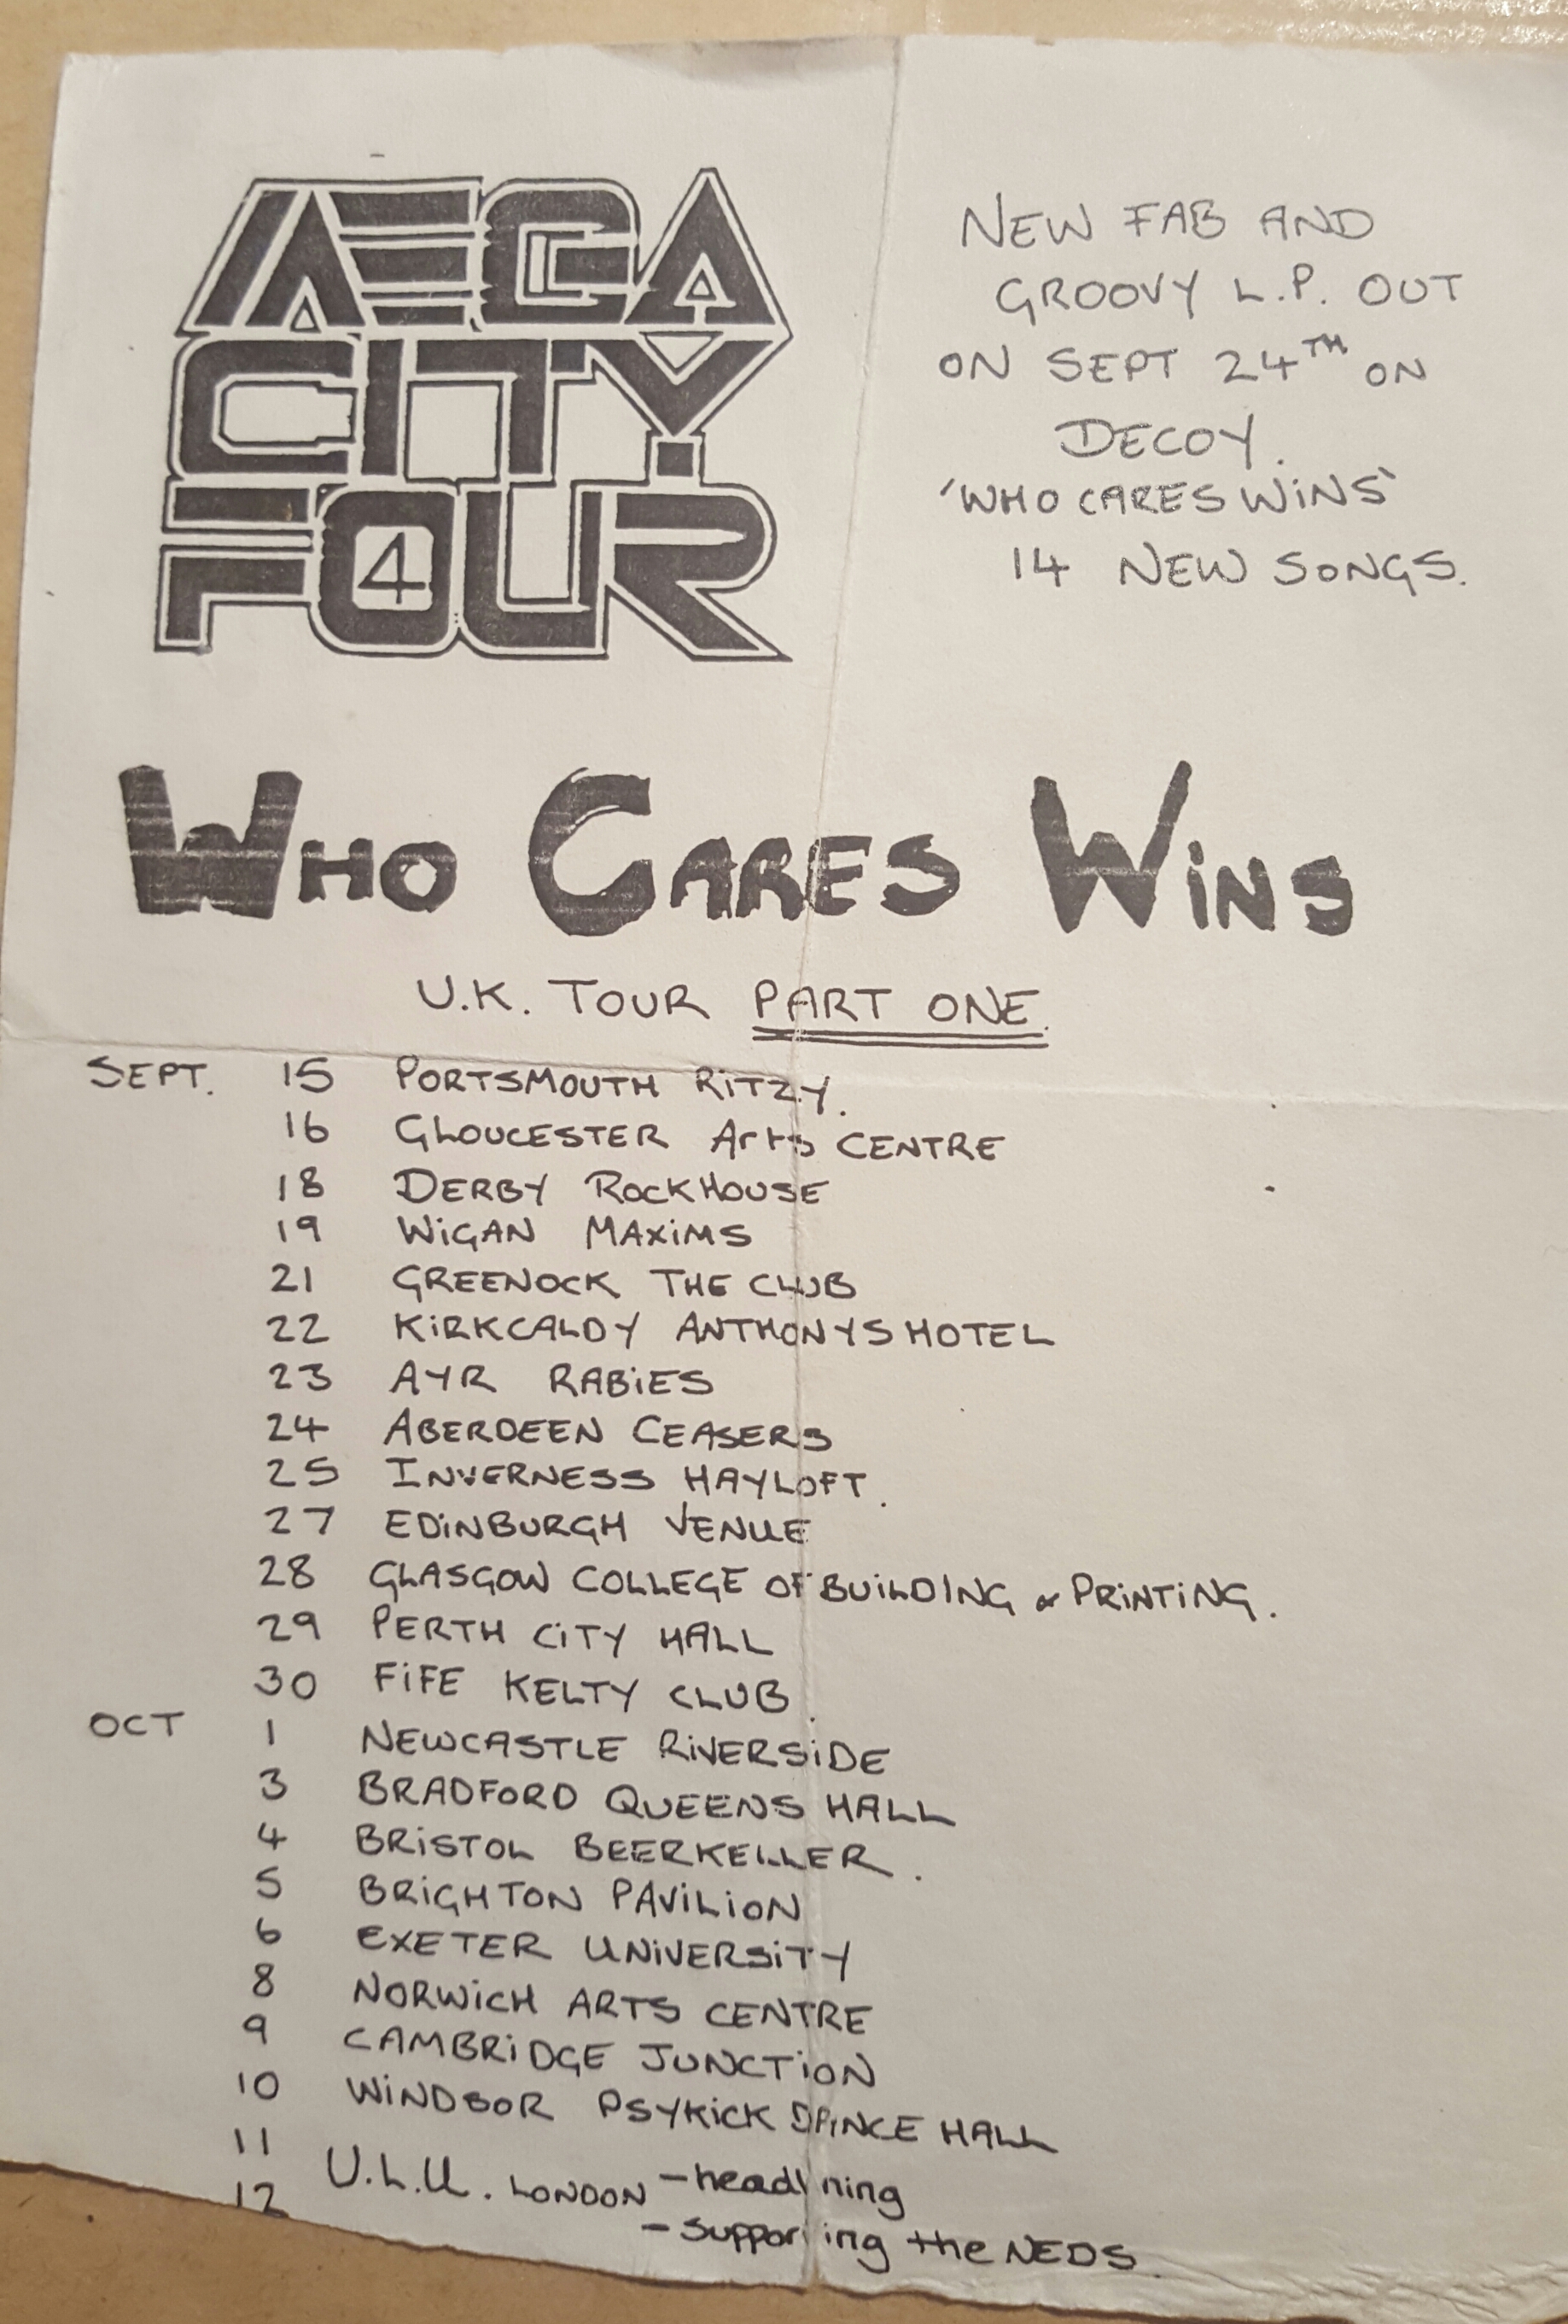 MEGA
CITY
FOUR
4
NEW FAB AND
GROOVY L.P. OUT
ON SEPT 24TH ON
DECOY.
'WHO CARES WiNS'
14 NEW SONGS.
WHO CARES WiNS
U.K. TOUR PART ONE.
SEPT. 15 PORTSMOUTH RiTZY.
16 GLOUCESTER Arts CENTRE
18 DERBY ROCKHOUSE
19 WiGAN MAXiMS
21 GREENOCK THE CLUB
22 KiRKCALDY ANTHONYS HOTEL
23 AYR RABiES
24 ABERDEEN CEASERS
25 INVERNESS HAYLOFT.
27 EDiNBURGH VENUE
28 GLASGOW COLLEGE OF BUiLDING & PRiNTiNG.
29 PERTH CiTY HALL
30 FiFE KELTY CLUB.
OCT 1 NEWCASTLE RiVERSiDE
3 BRADFORD QUEENS HALL
4 BRiSTOL BEERKELLER.
5 BRiGHTON PAViLiON
6 EXETER UNiVERSiTY
8 NORWiCH ARTS CENTRE
9 CAMBRiDGE JUNCTiON
10 WiNDSOR PSYKiCK DANCE HALL
11 U.L.U. LONDON - headlining
12 - supporting the NEDS.